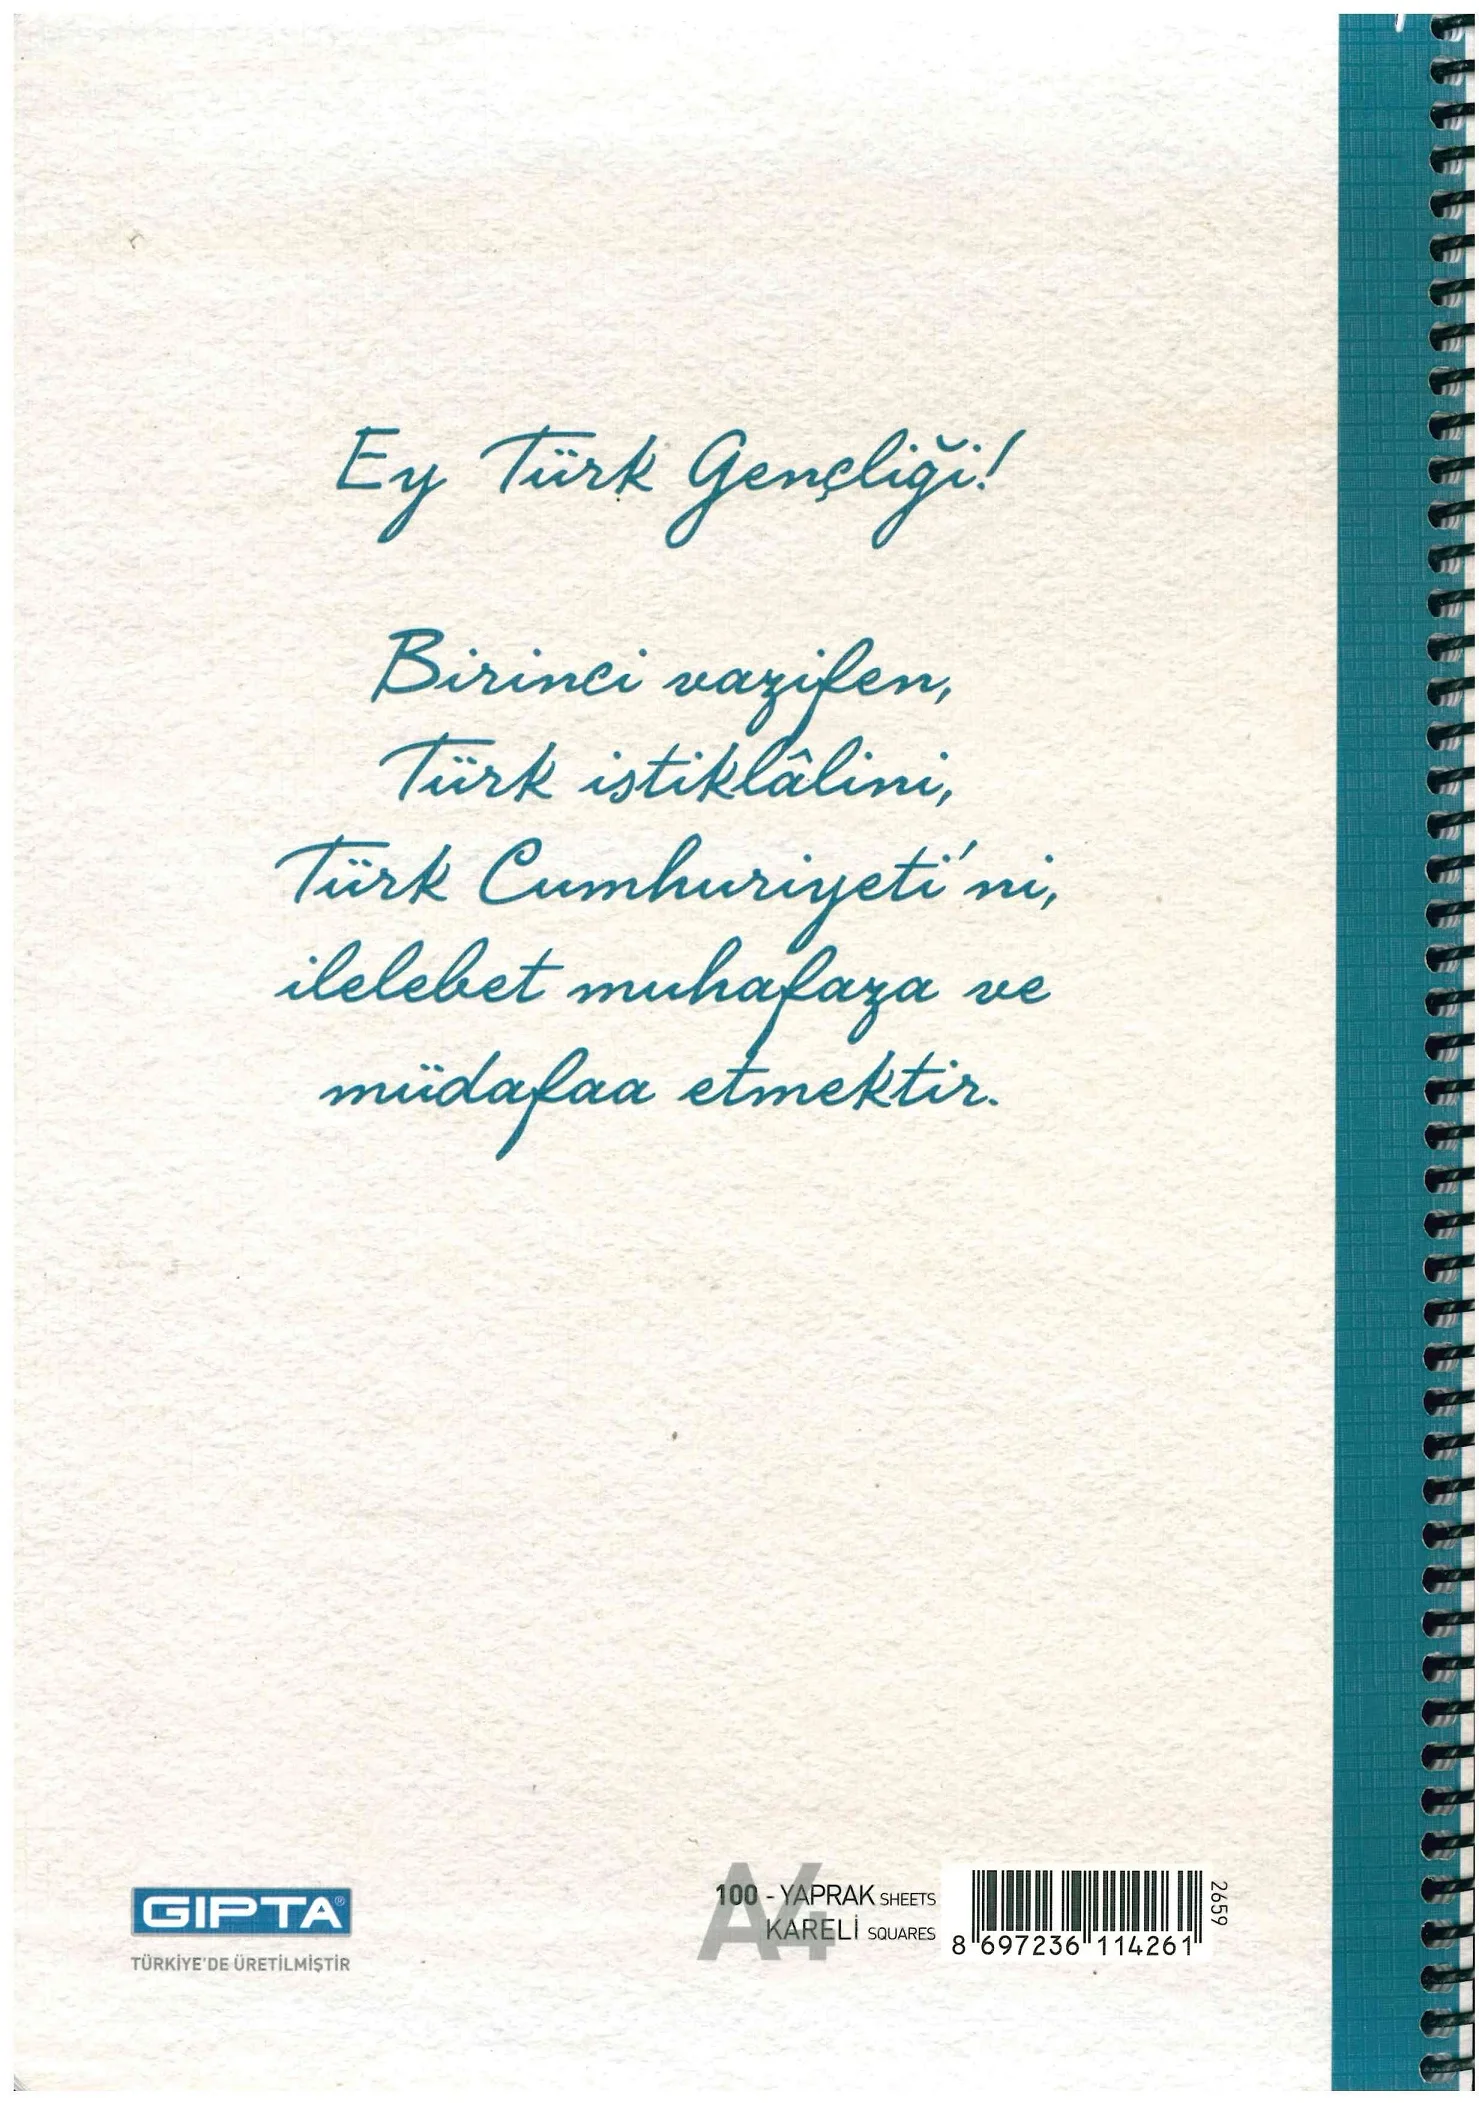 Ey Türk Gençliği!
Birinci vazifen,
Türk istiklâlini,
Türk Cumhuriyeti'ni,
ilelebet muhafaza ve
müdafaa etmektir.
GIPTA®
TÜRKİYE'DE ÜRETİLMİŞTİR
A4
100 - YAPRAK SHEETS
KARELİ SQUARES
8 697236 114261
2659